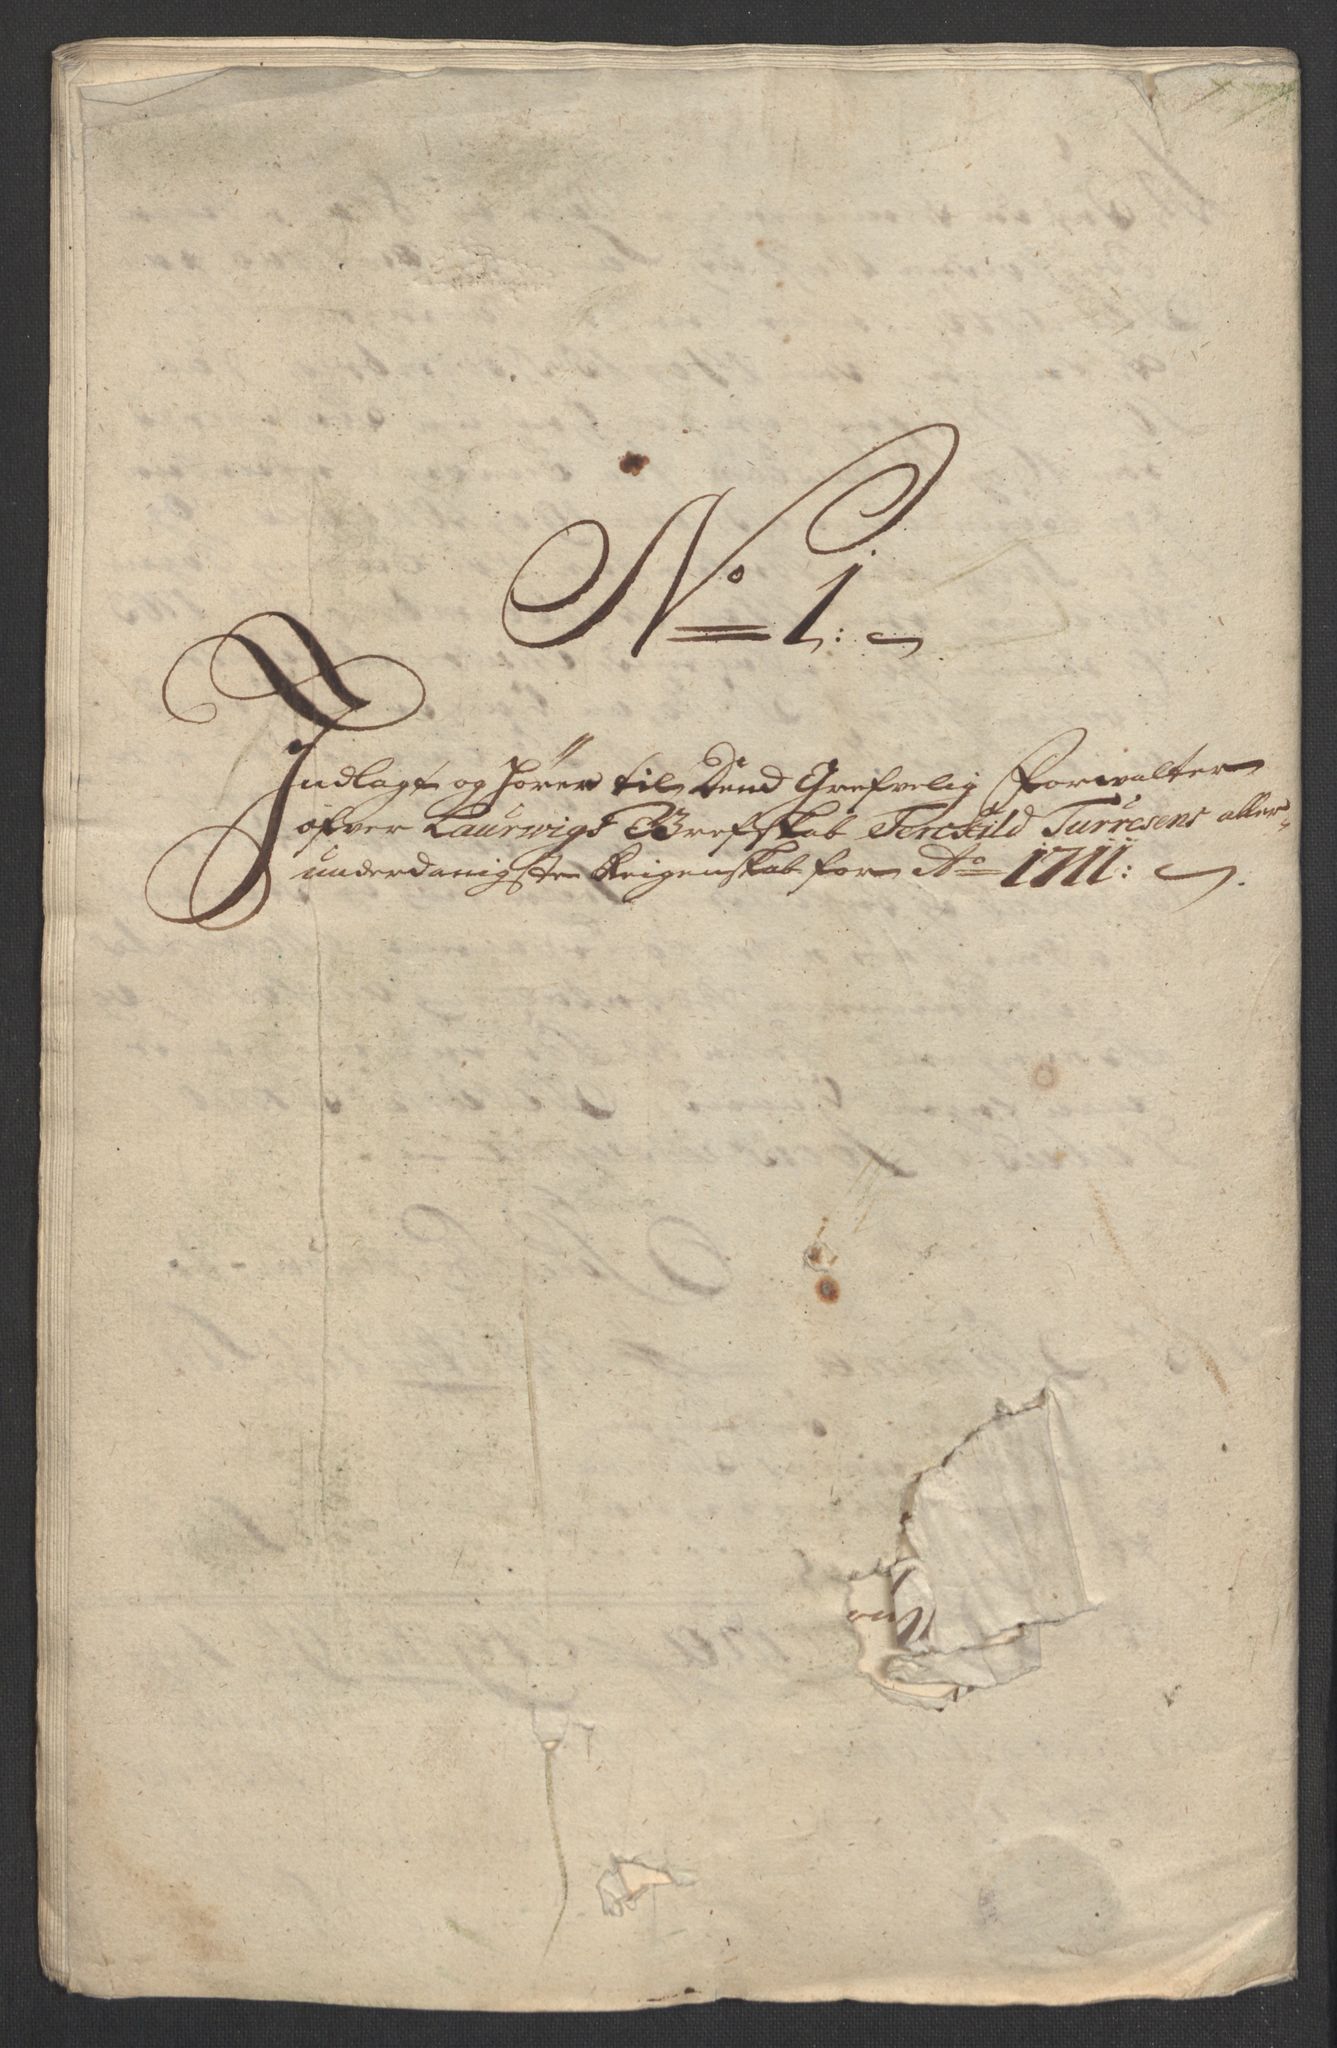 No 1:
Indlagt og hører til Dend Grefvelig Forwalter
ofver Laurwigs Grefskab Terckild Turresens aller-
underdanigste Reigenskab for Ao 1711: